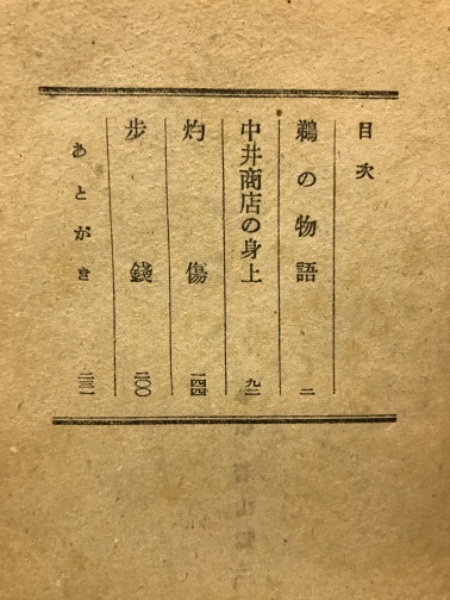 目次
鵜の物語 二
中井商店の身上 九二
灼傷 一四四
步錢 二〇〇
あとがき 二三一